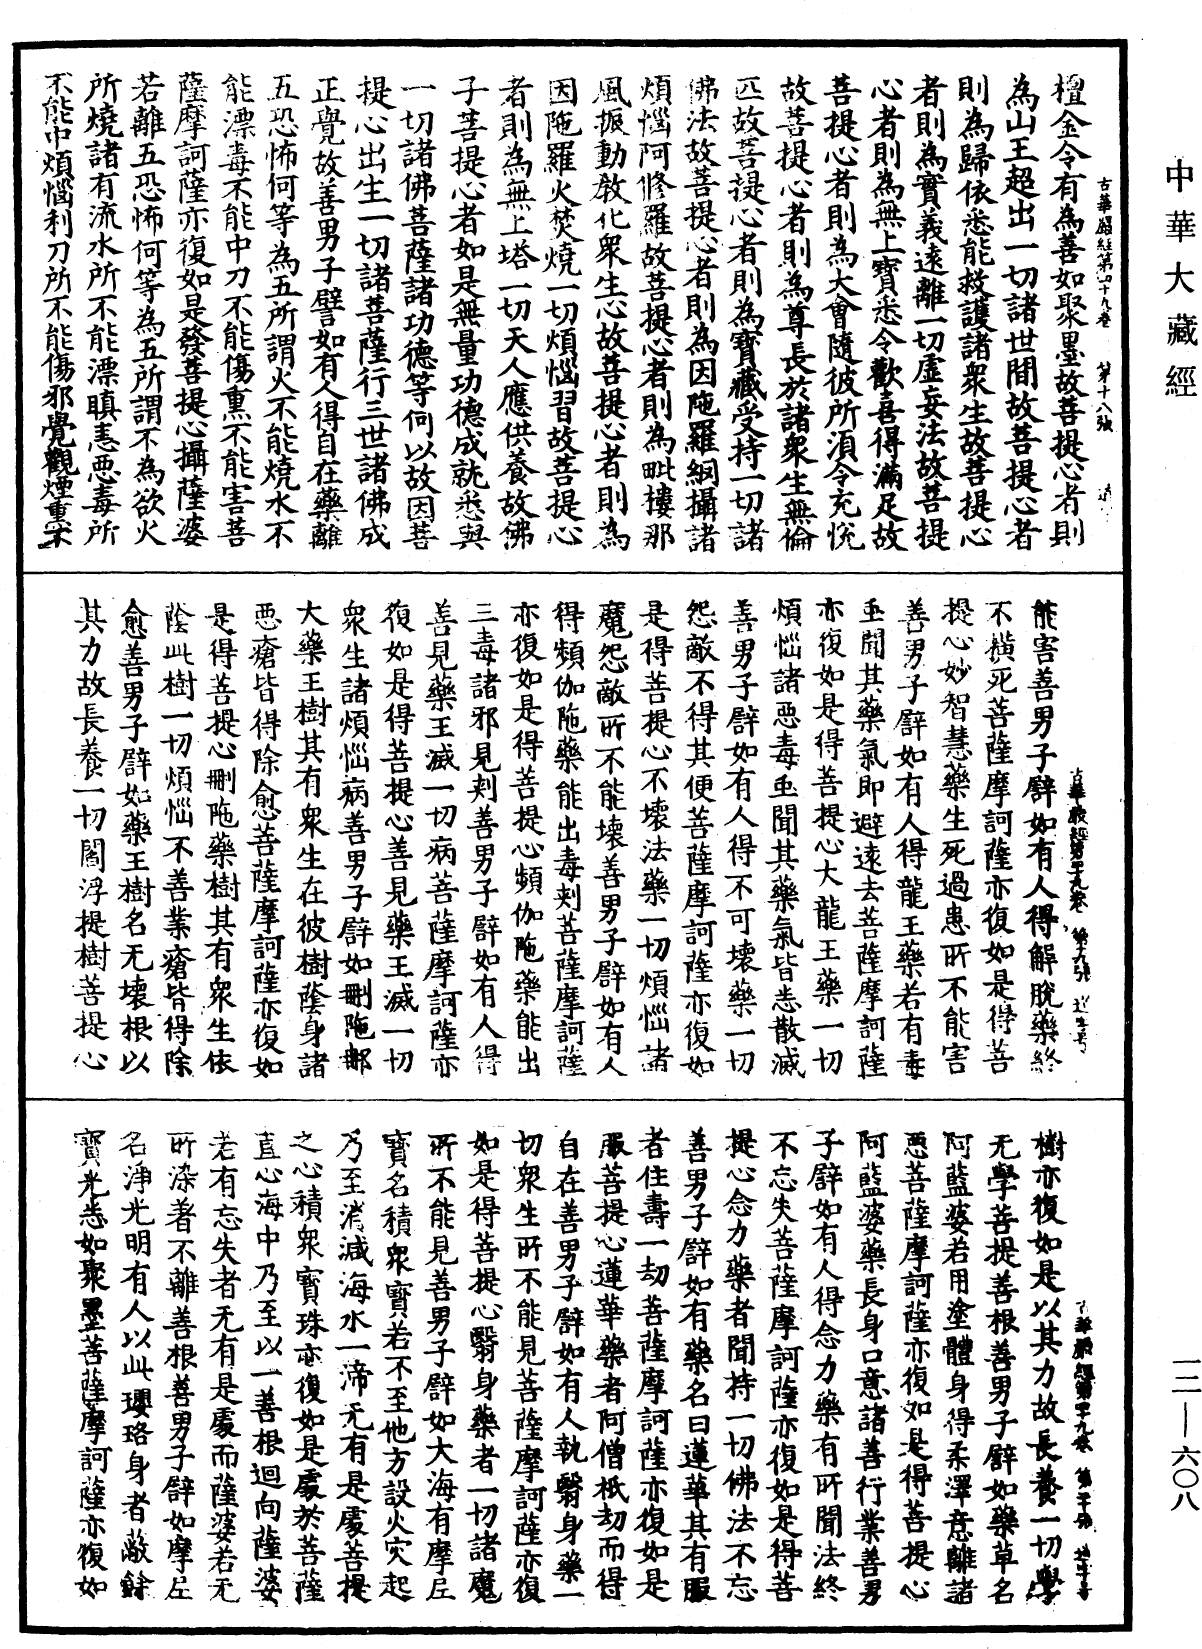 中華大藏經
古華嚴經第四十九卷　第十八張
檀金令有為善如聚墨故菩提心者則
為山王超出一切諸世間故菩提心者
則為歸依悉能救護諸衆生故菩提心
者則為實義遠離一切虛妄法故菩提
心者則為無上寶悉令歡喜得滿足故
菩提心者則為大會隨彼所須令充悅
故菩提心者則為尊長於諸衆生無倫
匹故菩提心者則為寶藏受持一切諸
佛法故菩提心者則為因陁羅網攝諸
煩惱阿修羅故菩提心者則為毗樓那
風振動教化衆生心故菩提心者則為
因陁羅火焚燒一切煩惱習故菩提心
者則為無上塔一切天人應供養故佛
子菩提心者如是無量功德成就悉與
一切諸佛菩薩諸功德等何以故因菩
提心出生一切諸菩薩行三世諸佛成
正覺故善男子譬如有人得自在藥離
五恐怖何等為五所謂火不能燒水不
能漂毒不能中刀不能傷熏不能害菩
薩摩訶薩亦復如是發菩提心攝薩婆
若離五恐怖何等為五所謂不為欲火
所燒諸有流水所不能漂瞋恚惡毒所
不能中煩惱利刀所不能傷邪覺觀煙熏不
能害善男子譬如有人得解脫藥終
不橫死菩薩摩訶薩亦復如是得菩
提心妙智慧藥生死過患所不能害
善男子譬如有人得龍王藥若有毒
䖝聞其藥氣即避遠去菩薩摩訶薩
亦復如是得菩提心大龍王藥一切
煩惱諸惡毒䖝聞其藥氣皆悉散滅
善男子譬如有人得不可壞藥一切
怨敵不得其便菩薩摩訶薩亦復如
是得菩提心不壞法藥一切煩惱諸
魔怨敵所不能壞善男子譬如有人
得頻伽陁藥能出毒刾菩薩摩訶薩
亦復如是得菩提心頻伽陁藥能出
三毒諸邪見刾善男子譬如有人得
善見藥王滅一切病菩薩摩訶薩亦
復如是得菩提心善見藥王滅一切
衆生諸煩惱病善男子譬如刪陁那
大藥王樹其有衆生在彼樹蔭身諸
惡瘡皆得除愈菩薩摩訶薩亦復如
是得菩提心刪陁藥樹其有衆生依
陰此樹一切煩惱不善業瘡皆得除
愈善男子譬如藥王樹名无壞根以
其力故長養一切閻浮提樹菩提心
樹亦復如是以其力故長養一切學
无學菩提善根善男子譬如藥草名
阿藍婆若用塗體身得柔澤意離諸
惡菩薩摩訶薩亦復如是得菩提心
阿藍婆藥長身口意諸善行業善男
子譬如有人得念力藥有所聞法終
不忘失菩薩摩訶薩亦復如是得菩
提心念力藥者聞持一切佛法不忘
善男子譬如有藥名曰蓮華其有服
者住壽一劫菩薩摩訶薩亦復如是
服菩提心蓮華藥者阿僧祇劫而得
自在善男子譬如有人執翳身藥一
切衆生所不能見菩薩摩訶薩亦復
如是得菩提心翳身藥者一切諸魔
所不能見善男子譬如大海有摩尼
寶名積衆寶若不至他方設火灾起
乃至消滅海水一渧无有是處菩提
之心積衆寶珠亦復如是處於菩薩
直心海中乃至以一善根迴向薩婆
若有忘失者无有是處而薩婆若无
所染著不離善根善男子譬如摩尼
名淨光明有人以此瓔珞身者蔽餘
寶光悉如聚墨菩薩摩訶薩亦復如
一二—六〇八